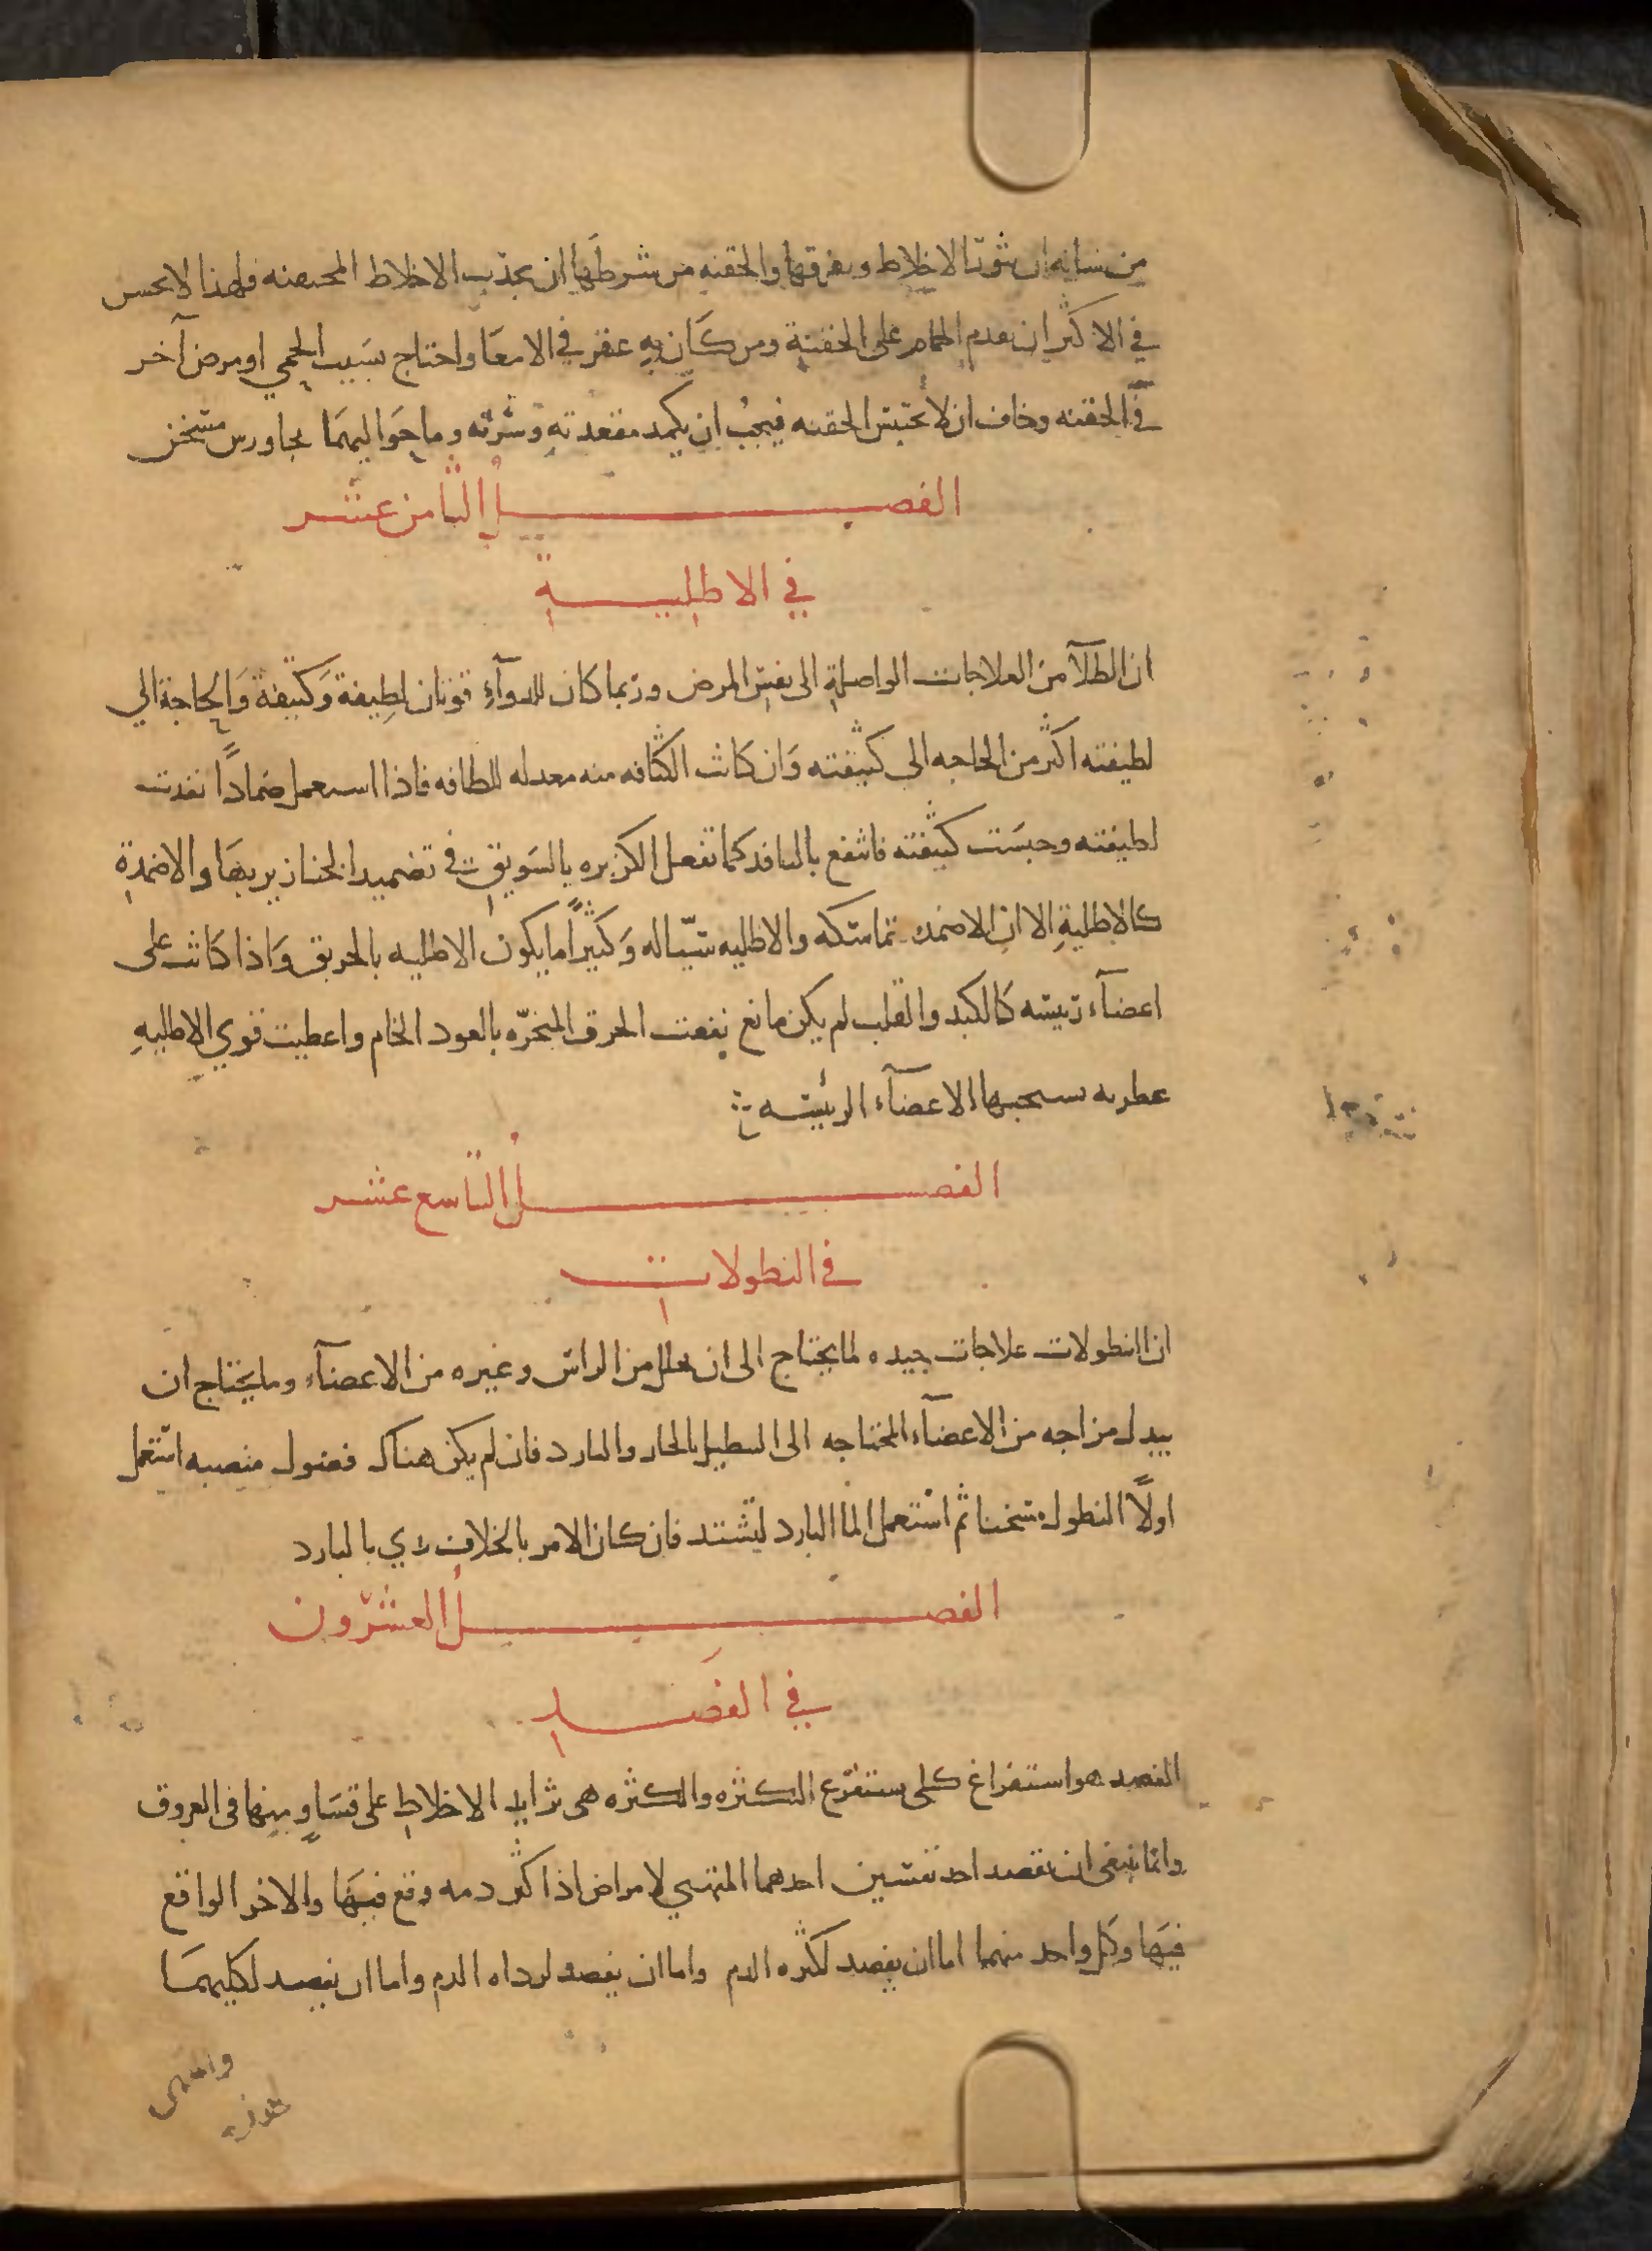 من شانه ان يثور الاخلاط ويفرقها والحقنه من شرطها ان يجذب الاخلاط المحتقنه فلهذا لا يحسن
في الاكثر ان يقدم الحمام على الحقنة ومن كان به عقر في الامعا واحتاج بسبب الحمي او مرض آخر
في الحقنه وخاف ان لا تحتبس الحقنه فيجب ان يكمد مقعدته وسرته وما حواليهما بجاورس مسخن
الفصل الثامن عشر
في الاطلية
ان الطلآ من العلاجات الواصلة الى نفس المرض وربما كان للدوآء قوتان لطيفة وكثيفة والحاجة الي
لطيفته اكثر من الحاجه الي كثيفته وان كانت الكثافه منه معدله للطافه فاذا استعمل ضمادًا نفدت
لطيفته وحبست كثيفته فانتفع بالنافد كما تفعل الكزبره بالسويق في تضميد الخنازير بها والاضمدة
كالاطلية الا ان الاضمد متماسكه والاطليه سيّاله وكثيرًا ما يكون الاطليه بالخرق واذا كانت على
اعضآء رئيسه كالكبد والقلب لم يكن مانع نفعت الخرق المبخرّه بالعود الخام واعطيت قوي الاطليه
عطريه يستحبها الاعضآء الرئيسه
الفصل التاسع عشر
في النطولات
ان النطولات علاجات جيده لما يحتاج الى ان يحلل من الراس وغيره من الاعضآء وما يحتاج ان
يبدل مزاجه من الاعضآء المحتاجه الى التنطيل بالحار والبارد فان لم يكن هناك فضول منصبه استعمل
اولًا النطول مسخنا ثم استعمل الما البارد ليشتد فان كان الامر بالخلاف بدي بالبارد
الفصل العشرون
في الفصد
الفصد هو استفراغ كلى يستفرغ الكثره والكثره هى تزايد الاخلاط على تساو بينها فى العروق
وانما ينبغى ان يفصد احد نفسين احدهما المتهيي لامراض اذا كثر دمه وقع فيها والاخر الواقع
فيها وكل واحد منهما اما ان يفصد لكثره الدم واما ان يفصد لرداه الدم واما ان يفصد لكليهما